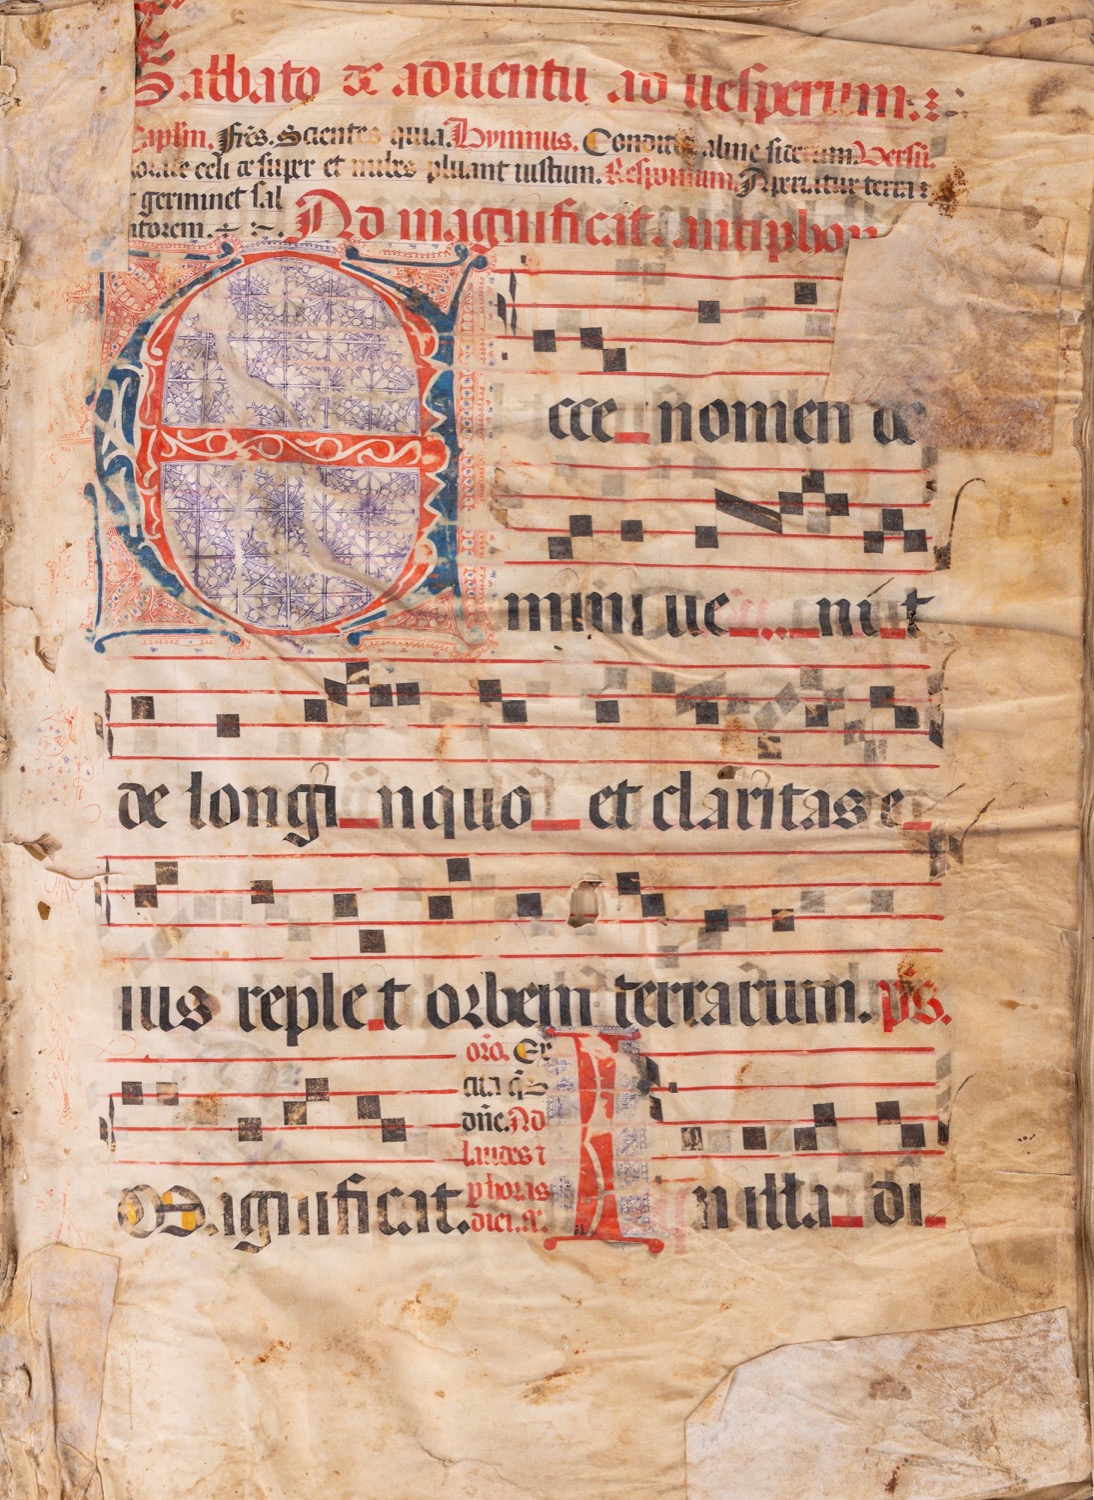 Sabbato de aduentu ad uesperum.
Caplm. Frēs. Scientes quia. Hymnus. Conditor alme siderum. Versū.
Rorate celi de super et nubes pluant iustum. Responsum. Aperiatur terra
et germinet sal
uatorem. Ad magnificat. antiphon
Ecce nomen do
mini ue nit
de longinquo et claritas e
ius replet orbem terrarum. ps.
Magnificat.
orō. Ex
cita qs
dñe. Ad
laudes ⁊
p horas
dici. a.
In illa di